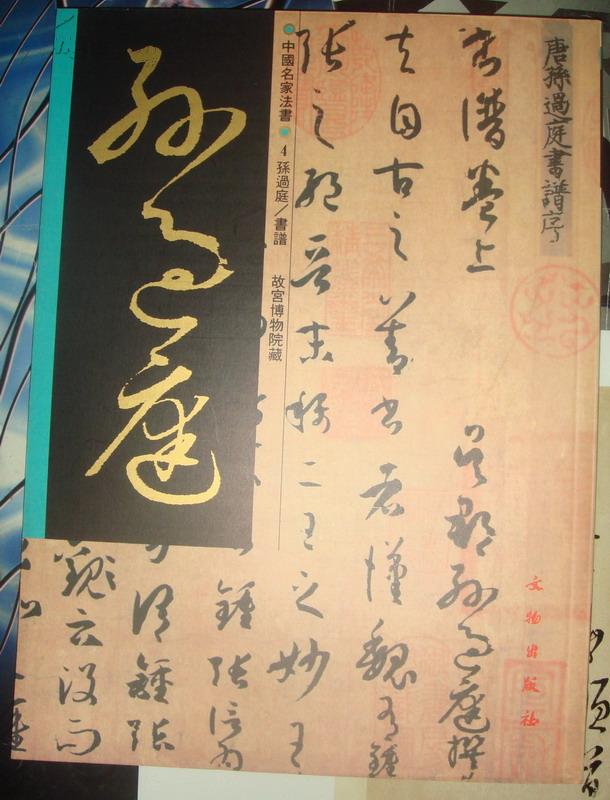 唐孫過庭書譜序
書譜卷上 吳郡孫過庭撰
夫自古之善書者漢魏有鍾
張之絕晉末稱二王之妙王
鍾張信為
謂鍾張
云沒而
文物出版社
中國名家法書
4 孫過庭/書譜 故宮博物院藏
孫過庭